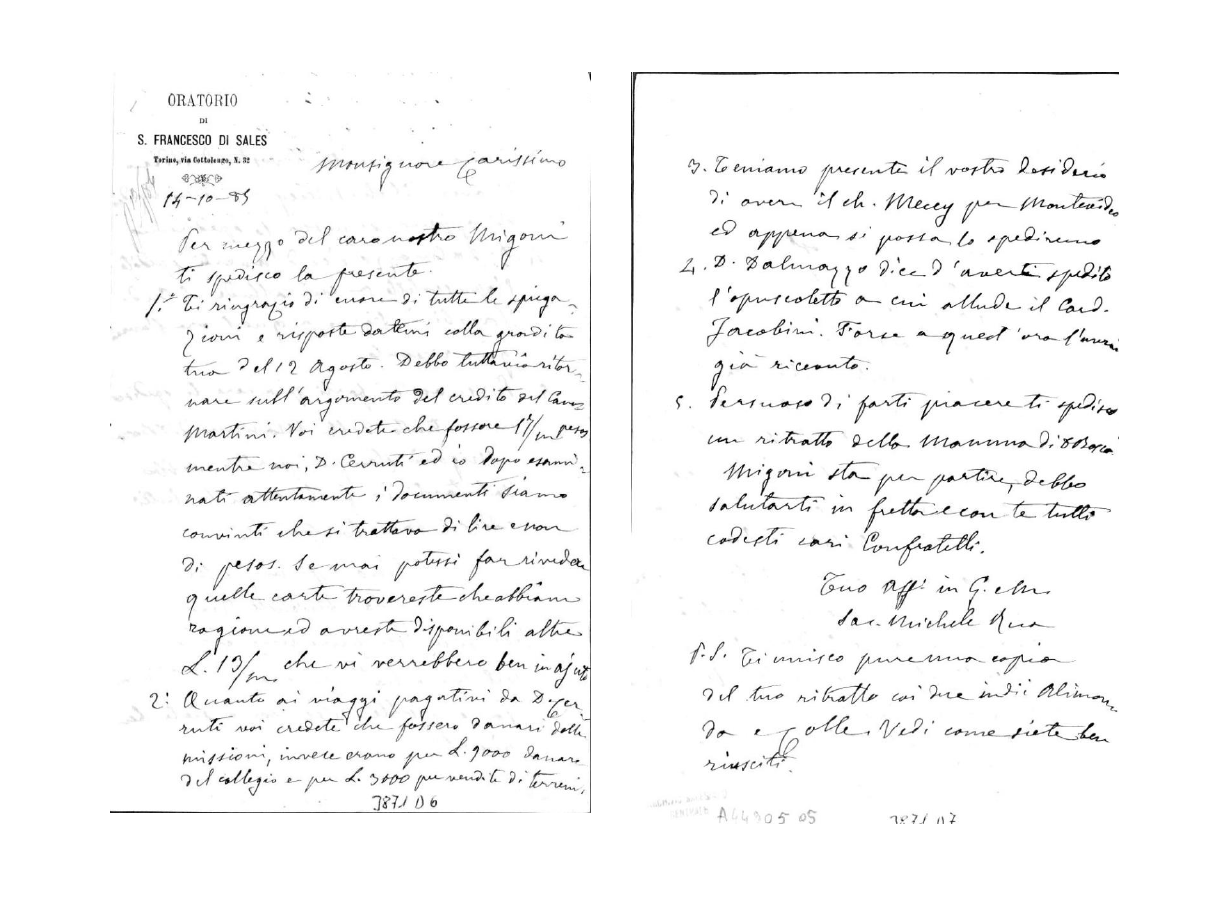 ORATORIO
DI
S. FRANCESCO DI SALES
Torino, via Cottolengo, N. 32
Monsignore Carissimo
14-10-85
Per mezzo del caro nostro Migoni
ti spedisco la presente.
1.° Ti ringrazio di cuore di tutte le spiega-
zioni e risposte dattemi colla gradita
tua del 12 Agosto. Debbo tuttavia ritor-
nare sull'argomento del credito del
Martini. Voi credete che fossero 17/m pesos
mentre noi, D. Cerruti ed io dopo esami-
nati attentamente i documenti siamo
convinti che si trattava di lire e non
di pesos. Se mai potessi far rivedere
quelle carte trovereste che abbiam
ragione ed avreste disponibili altre
L. 13/m che vi verrebbero ben in ajuto
2° Quanto ai viaggi pagatini da D. Cer-
ruti voi credete che fossero danari delle
missioni, invece erano per L. 9000 danaro
del collegio e per L. 3000 per vendite di terreni.
3871 D6
3. Teniamo presente il vostro desiderio
di avere il ch. Meccy per Montevideo
ed appena si possa lo spediremo
4. D. Dalmazzo dice d'averti spedito
l'opuscoletto a cui allude il Card.
Jacobini. Forse a quest'ora l'avrai
già ricevuto.
5. Persuaso di farti piacere ti spedisco
un ritratto della Mamma di D Bosco
Migoni sta per partire, debbo
salutarti in fretta e con te tutti
codesti cari Confratelli.
Tuo Aff. in G. e M.
Sac. Michele Rua
P.S. Ti unisco pure una copia
del tuo ritratto coi due indii Alimon-
da e Colle. Vedi come siete ben
riusciti.
A4490505
3871 D7